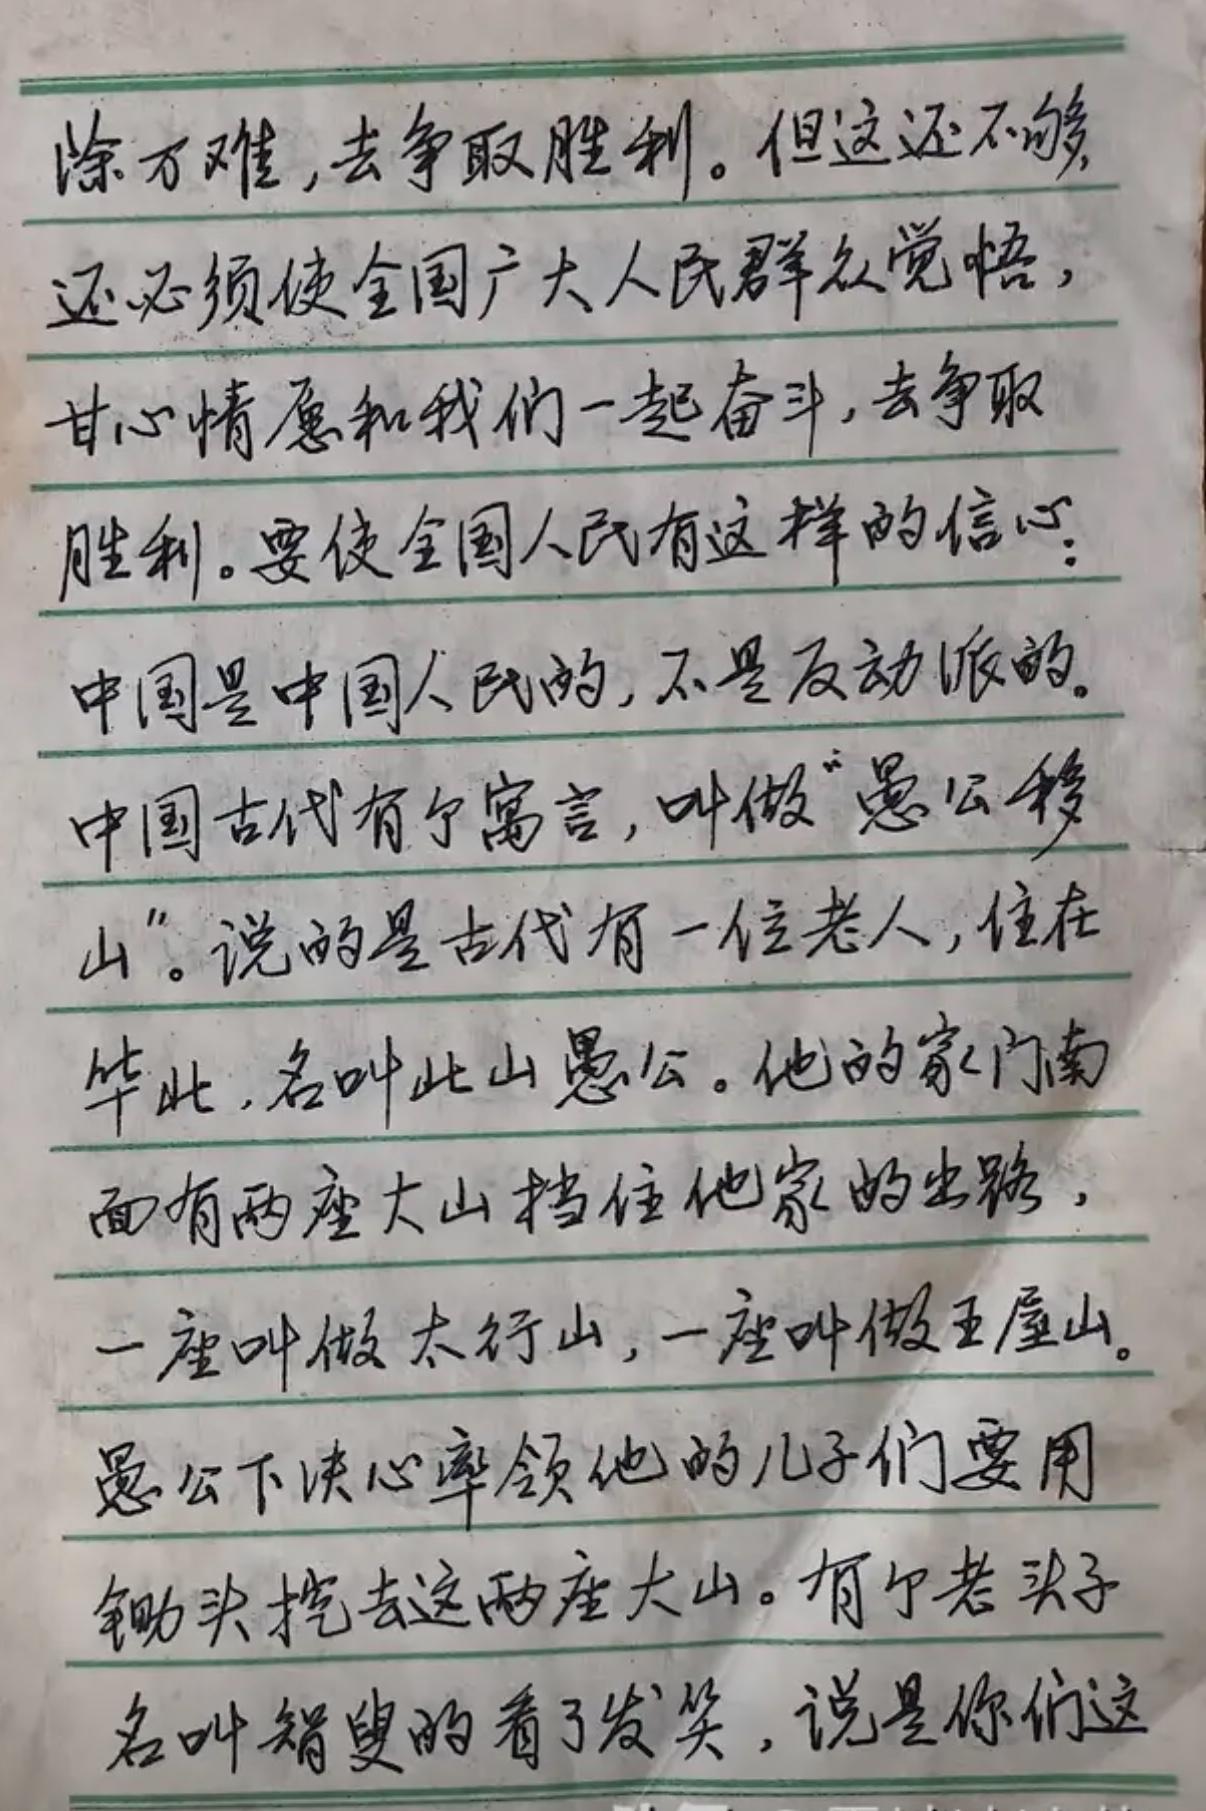 除万难，去争取胜利。但这还不够，
还必须使全国广大人民群众觉悟，
甘心情愿和我们一起奋斗，去争取
胜利。要使全国人民有这样的信心：
中国是中国人民的，不是反动派的。
中国古代有个寓言，叫做“愚公移
山”。说的是古代有一位老人，住在
华北，名叫北山愚公。他的家门南
面有两座大山挡住他家的出路，
一座叫做太行山，一座叫做王屋山。
愚公下决心率领他的儿子们要用
锄头挖去这两座大山。有个老头子
名叫智叟的看了发笑，说是你们这